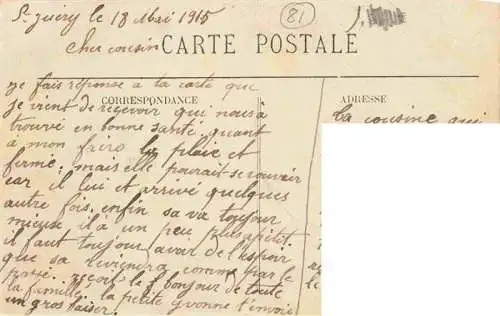 St Juéry le 18 Mai 1915
81
Cher cousin CARTE POSTALE
je fais réponse a ta carte que
je vient de recevoir qui nous à
CORRESPONDANCE
ADRESSE
trouvé en bonne santé, quant
a mon frère la plaie et
fermé, mais elle pourait se rouvrir
car il lui et arrivé quelques
autre fois. enfin sa va toujour
mieux il à un peu plus apetit
il faut toujour avoir de l'espoir
que sa reviendra comme par le
passé. reçois le bonjour de toute
la famille, la petite yvonne t'envoie
un gros baiser.
ta cousine qui